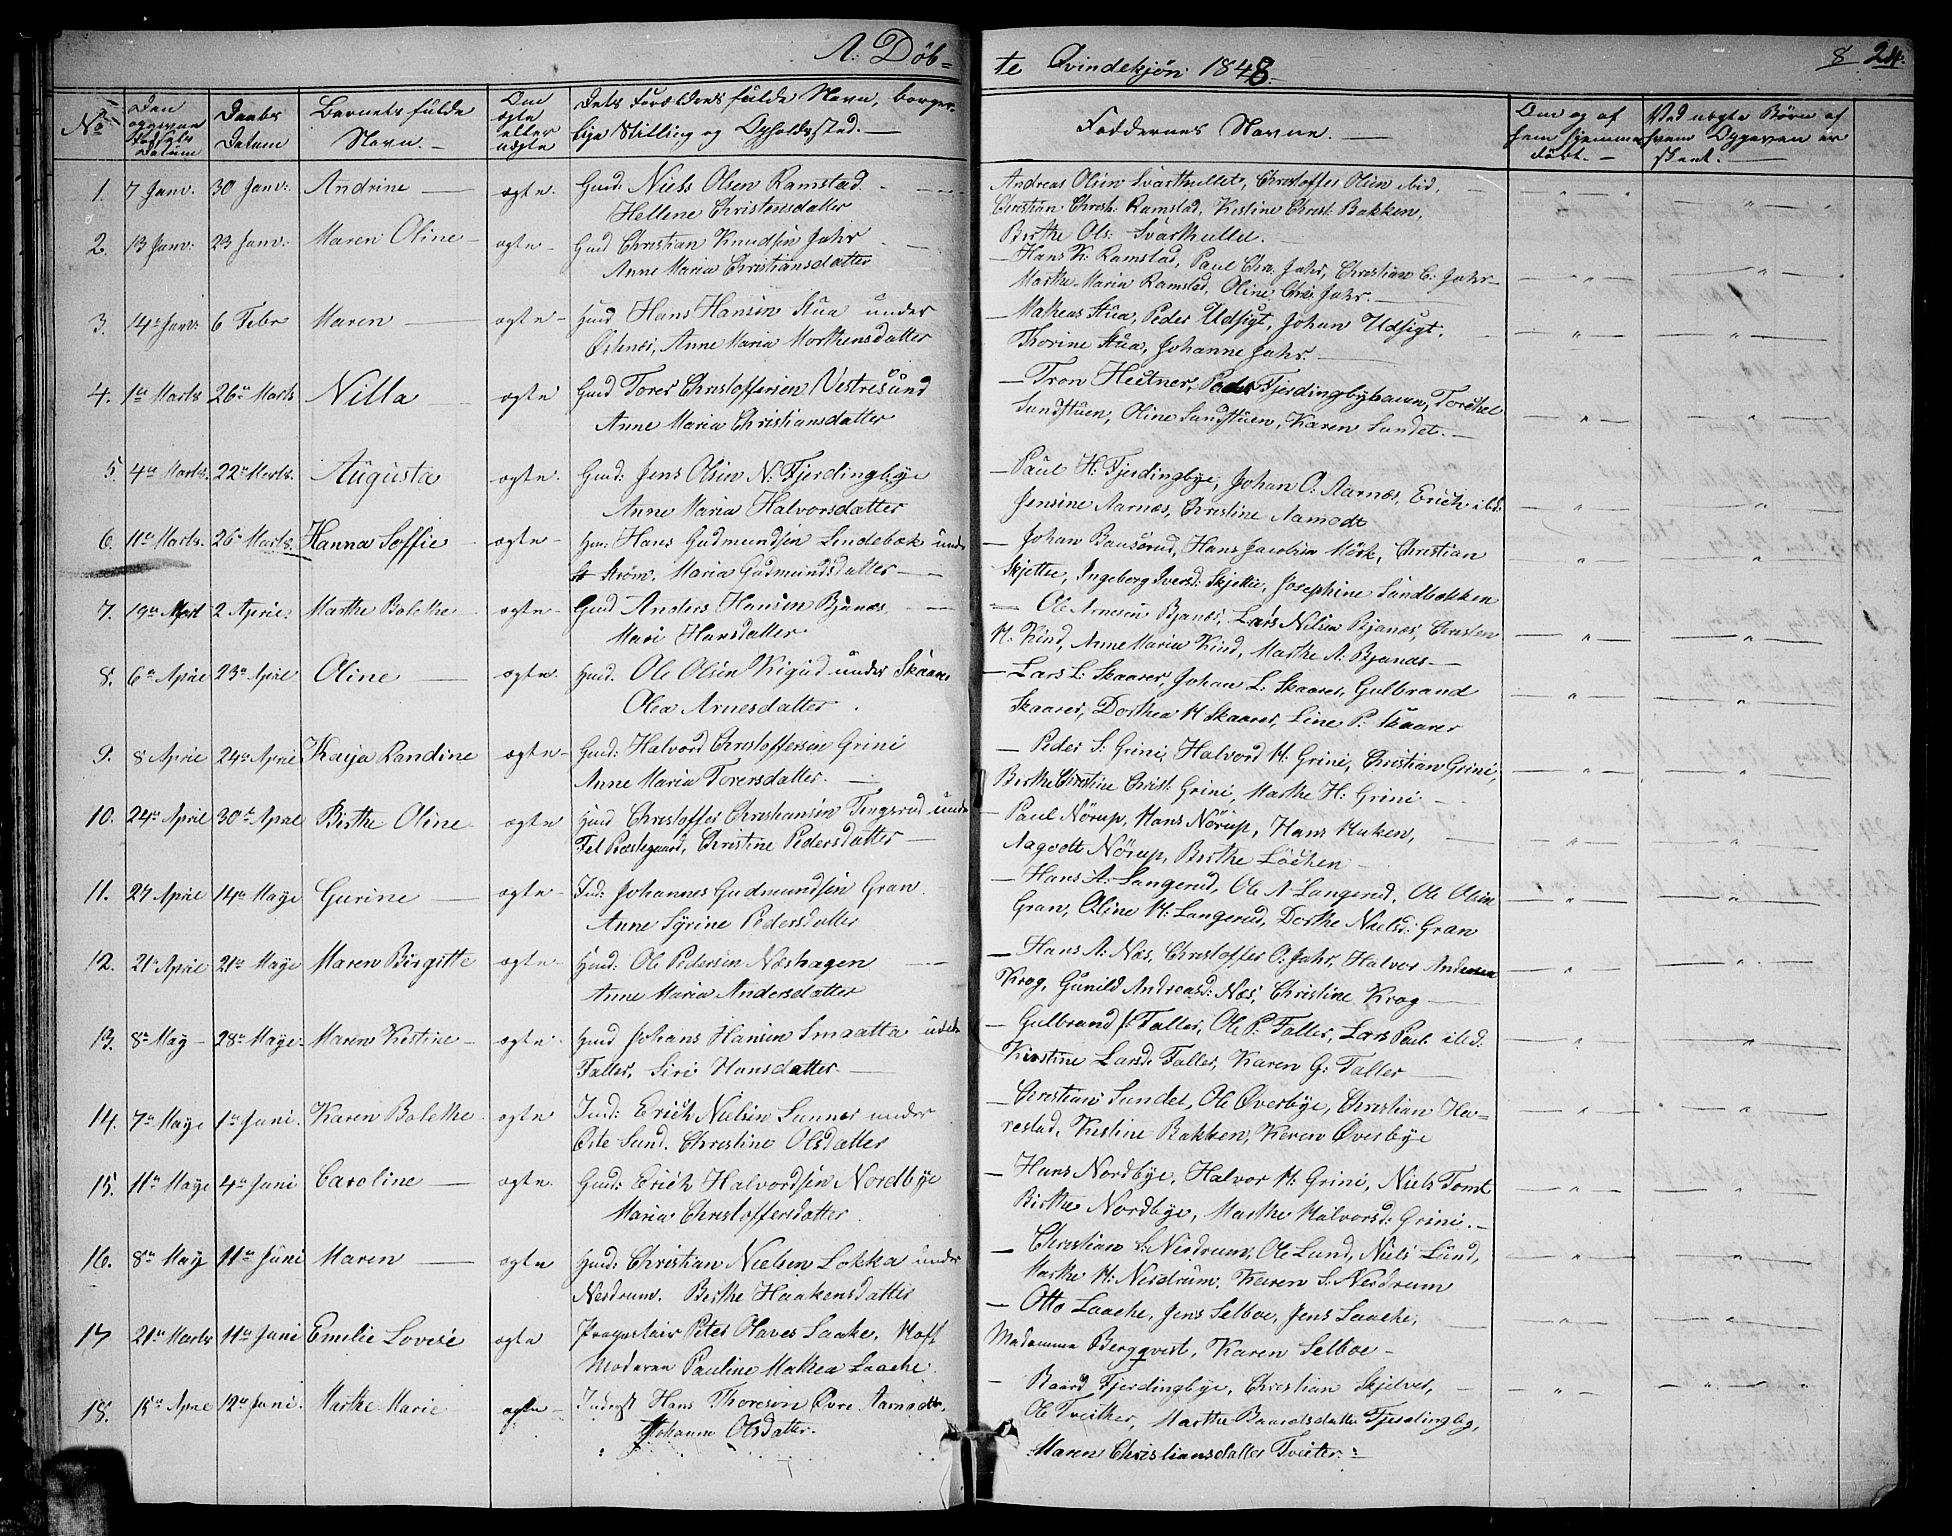 A: Döb=
te Qvindekjøn 1848.
8 24.
No
Den opgivne Fødsels Datum
Daabs Datum
Barnets fulde Navn.
Om ægte eller uægte
Dets Forældres fulde Navn, borger-
lige Stilling og Opholdssted.
Faddernes Navne.
Om og af hvem hjemmedöbt.
Ved uægte Børn af hvem Opgaven er skeet.
1. 7 Janv. 30 Janv: Andrine ægte. Gmd: Niels Olsen Ramstad
Hellene Christensdatter
Andreas Olsen Svarthullet, Christoffer Olsen ibid,
Christian Christ: Ramstad, Kistine Christ: Bakken,
Birthe Ols: Svarthullet.
2. 13 Janv: 23 Janv: Maren Oline ægte Gmd Christian Knudsen Jahr
Anne Maria Christiansdatter
Hans K: Ramstad, Paul Chr: Jahr, Christian C: Jahr
Marthe Maria Ramstad, Oline Chr: Jahr.
3. 14de Janv: 6 Febr Maren ægte Gmd Hans Hansen Stua under
Østnæs, Anne Maria Morthensdatter
Matheas Stua, Peder Udsigt, Johan Udsigt,
Thorine Stua, Johanne Jahr.
4. 1te Marts 26de Marts Nilla ægte Gmd Torer Christoffersen Vestresund
Anne Maria Christiansdatter
Tron Heitner, Peder Fjerdingbyhaven, Torchel
Sandstuen, Oline Sandstuen, Karen Sundet.
5. 4de Marts. 22de Marts. Augusta ægte. Gmd: Jens Olsen N: Fjerdingbye
Anne Maria Halvorsdatter
Paul H: Fjerdingbye, Johan O: Aarnæs, Erich ibd:
Jensine Aarnæs, Christine Aamodt
6. 11te Marts. 26de Marts. Hanna Soffie ægte Hans Gudmundsen Lindebæk under
Strøm. Maria Gudmundsdatter
Johan Bansérud, Hans Jacobsen Mörk, Christian
Skjetter, Ingeborg Iversd: Skjetter, Josephine Sandbækken
7. 19de Mart 2 April. Marthe Bolette ægte Gmd Anders Hansen Bjanæs
Mari Hansdatter
Ole Arnesen Bjanæs, Lars Nilsen Bjanæs, Christen
H: Kind, Anne Maria Kind, Marthe A: Bjanæs
8. 6te April 23de April Oline ægte. Gmd. Ole Olsen Kigud under Skaarer
Olea Arnesdatter
Lars L: Skaarer, Johan L: Skaarer, Gulbrand
Skaarer, Dorthea H Skaarer, Line P: Skaarer
9. 8 April 24de April Kaija Randine ægte Gmd: Halvord Christoffersen Grini
Anne Maria Torersdatter.
Peder S: Grini, Halvord H: Grini, Christian Grini,
Birthe Christine Christ: Grini, Marthe H: Grini
10. 24de April 30te April Birthe Oline ægte Gmd Christoffer Christiansen Tingsrud under
Fet Præstegaard, Christine Pedersdatter
Paul Nörup, Hans Nörup, Hans Huken,
Aagodt Nörup, Birthe Löchen
11. 24 April 14de Maye Gurine ægte Ind: Johannes Gudmundsen Gran
Anne Syrine Pedersdatter
Hans A: Langerud, Ole A Langerud, Ole Olsen
Gran, Oline H: Langerud, Dorthe Nielsd: Gran
12. 21de April 21de Maye Maren Birgitte ægte Gmd: Ole Pedersen Næshagen
Anne Maria Andersdatter
Hans A: Næs, Christoffer O: Jahr, Halvor Andersen
Krog, Gunild Andreasd: Næs, Christine Krog
13. 8de May 28de Maye Maren Kistine ægte Gmd Johans Hansen Smaatta under
Faller, Siri Hansdatter
Gulbrand P: Faller, Ole P: Faller, Lars Pauls ibd:
Kirstine Larsd: Faller, Karen G: Faller
14. 7de Maye 1te Juni. Karen Bolette ægte Ind: Erich Nielsen Sunner under
Øste Sund. Christine Olsdatter
Christian Sundet, Ole Øverbye, Christian He-
restad, Kistine Bakken, Karen Øverbye
15. 11te Maye 4de Juni Caroline ægte. Gmd: Erich Halvordsen Nordbye
Maria Christoffersdatter
Hans Nordbye, Halvor H: Grini, Niels Tomt
Birthe Nordbye, Marthe Halvorsd: Grini.
16. 8de May 11te Juni Maren ægte Gmd: Christian Nielsen Løkka under
Nerdrum. Birthe Haakensdatter
Christian S: Nerdrum, Ole Lund, Niels Lund,
Marthe H: Nerdrum. Karen S: Nerdrum
17 21de Marts 11te Juni Emilie Lovise ægte Peter Olaves Laake. Hoft
Moderen Pauline Mathea Laache.
Otto Laache, Jens Selboe, Jens Laache,
Madamme Bergqvist, Karen Selboe
18. 15de April 12te Juni. Marthe Marie ægte Inderst Hans Thoresen Øvre Aarnæs
Johanne Olsdatter.
Baard Fjerdingbye, Christian Skjelver,
Ole Tveither, Marthe Baardsdatter Fjerdingby,
Maren Christiansdatter Tveiter.